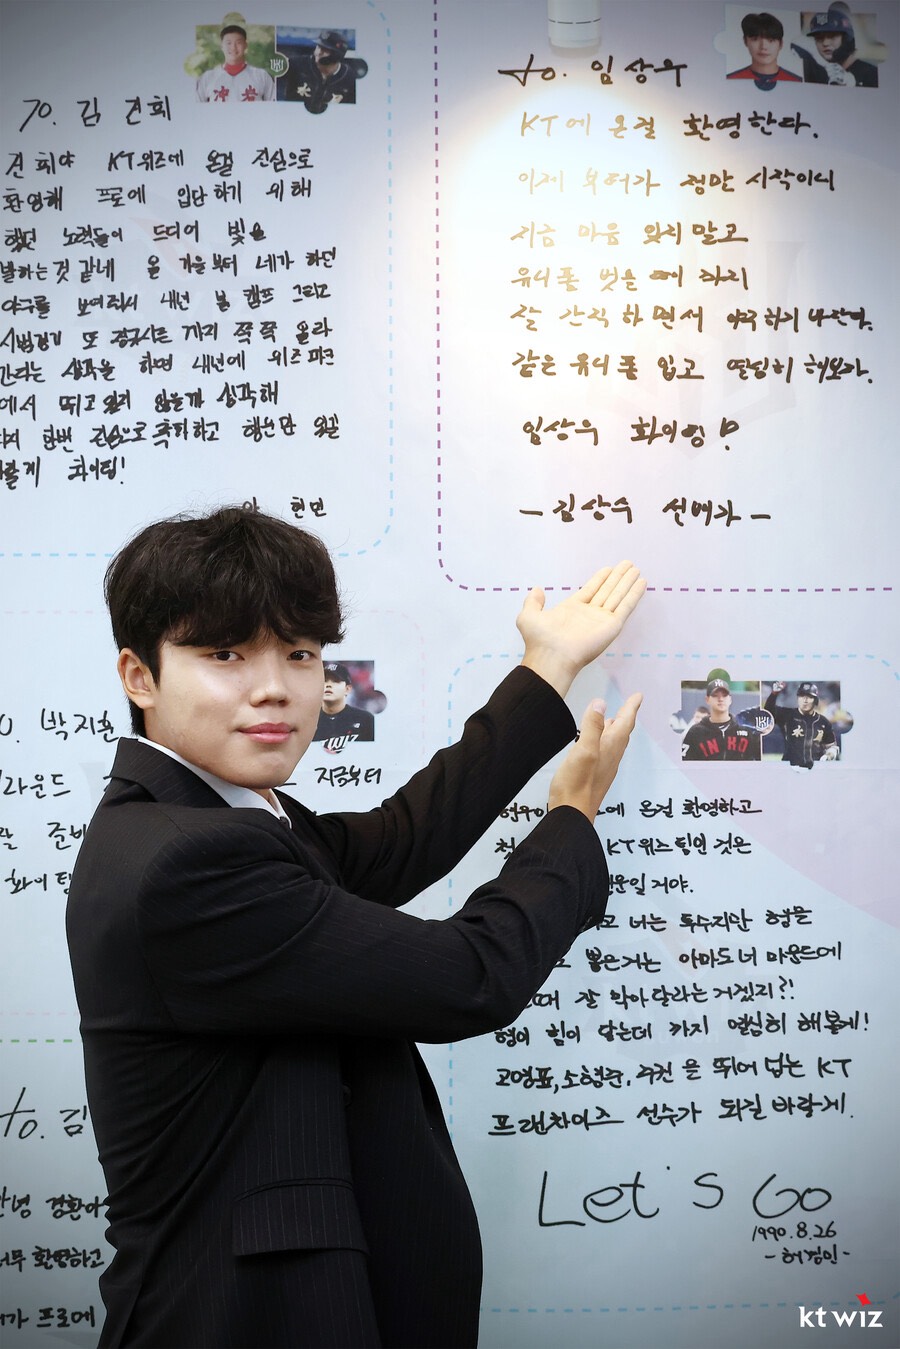 TO. 김 건희
건희야 KT위즈에 온걸 진심으로
환영해 프로에 입단하기 위해
했던 노력들이 드디어 빛을
발하는것 같네 올 가을부터 네가 하던
야구를 보여줘서 내년 봄 캠프 그리고
시범경기 또 정규시즌까지 쭉쭉 올라
간다는 생각을 하면 내년에 위즈파크
에서 뛰고 있지 않을까 생각해
다시 한번 진심으로 축하하고 행운만 있길
바랄게 화이팅!
안 현민
to. 임상우
KT에 온걸 환영한다.
이제 부터가 정말 시작이니
지금 마음 잊지 말고
유니폼 벗을 때 까지
잘 간직하면서 야구하기 바란다.
같은 유니폼 입고 열심히 해보자.
임상우 화이팅!
- 김상수 선배가 -
박지훈
라운드
지금부터
준비
화이팅
에 온걸 환영하고
KT위즈 팀인 것은
운일 거야.
고 너는 투수지만 형을
뽑은거는 아마도 너 마운드에
때 잘 막아달라는거겠지?!
형이 힘이 닿는데 까지 열심히 해볼게!
고영표, 소형준, 주권 을 뛰어 넘는 KT
프랜차이즈 선수가 되길 바랄게.
Let's Go
1990.8.26
- 허경민 -
to. 김
안녕 경환아
너무 환영하고
가 프로에
kt wiz